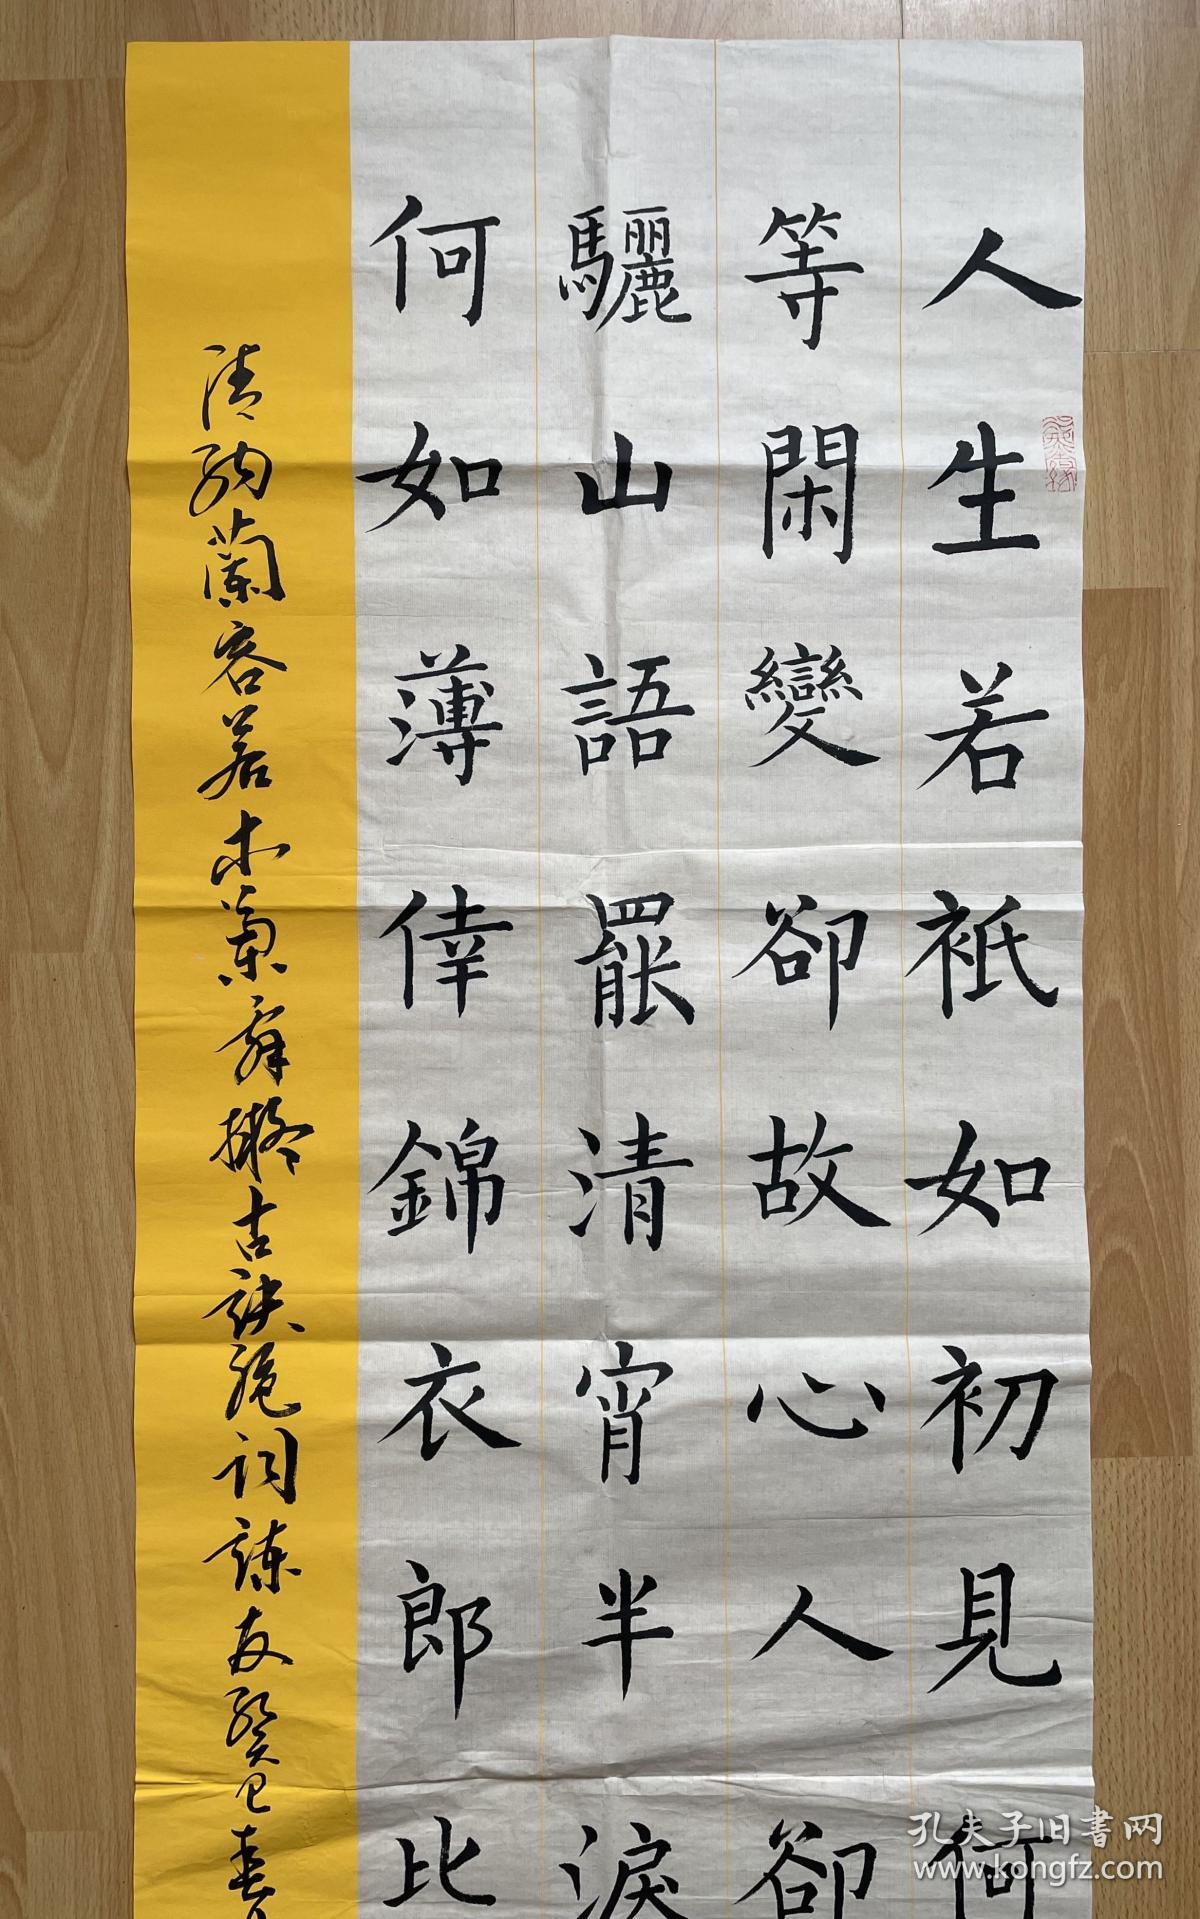 人生若衹如初見何
等閑變卻故心人卻
驪山語罷清宵半淚
何如薄倖錦衣郎比
清納蘭容若木蘭辭擬古訣絕詞諫友癸巳春
孔夫子旧書网
www.kongfz.com